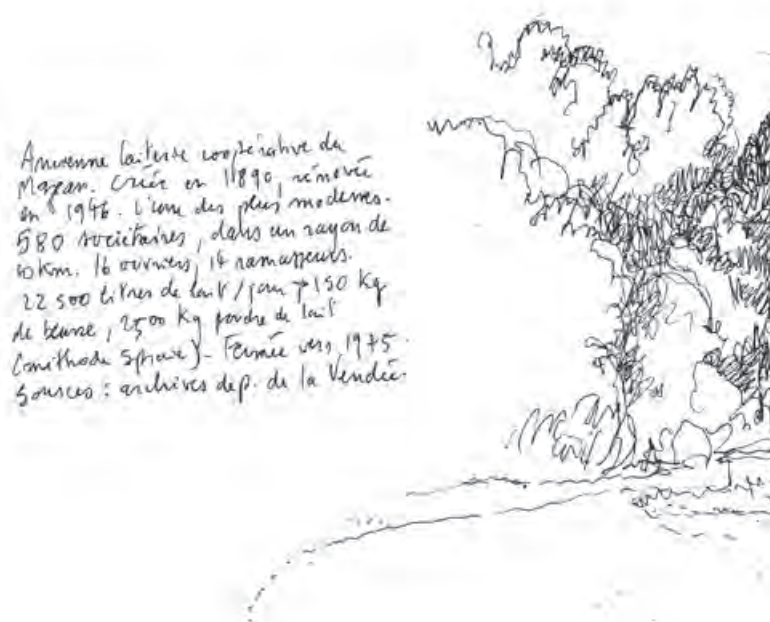 Ancienne laiterie coopérative du
Mazeau. Créée en 1890, rénovée
en 1946. L'une des plus modernes.
580 sociétaires, dans un rayon de
10 km. 16 ouvriers, 14 ramasseurs.
22 500 litres de lait / jour → 150 Kg
de beurre, 2500 Kg poudre de lait
(méthode). Fermée vers 1975.
Sources : archives dép. de la Vendée.